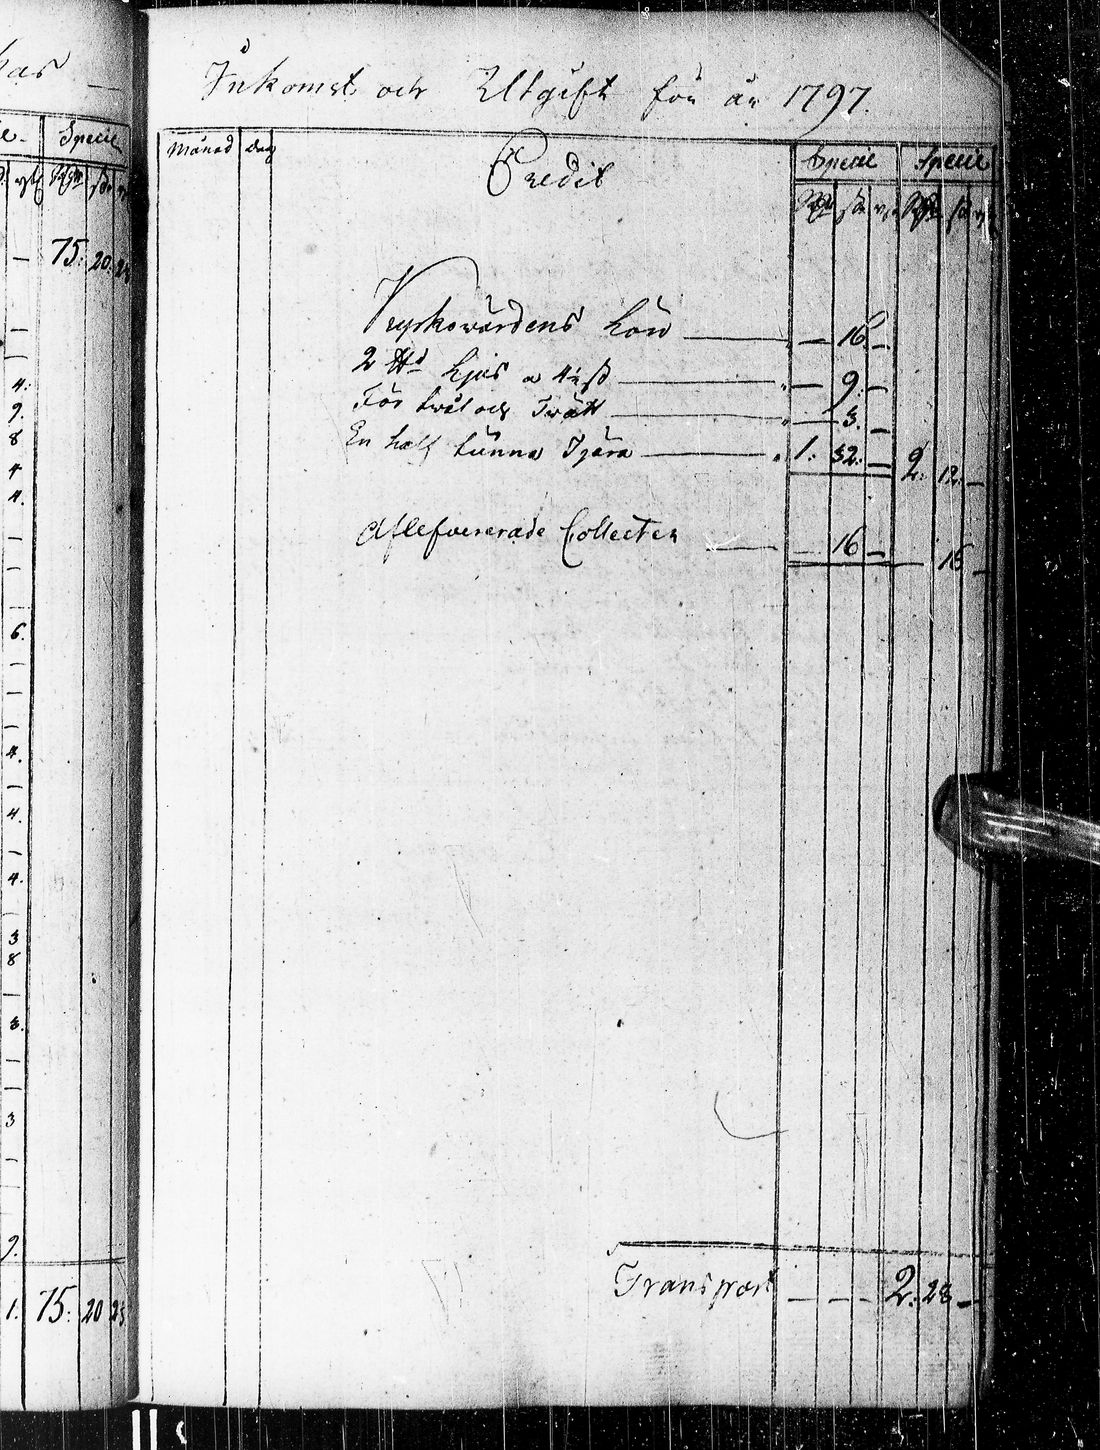 has
Specie
75: 20. 28
4:
9.
8
4
4.
6.
4.
4.
4.
3
8
3.
3
9.
1. 75: 20 28
Inkomst och Utgift för år 1797.
Månad Dag Credit Specie Specie
Kyrkovärdens Lön — 16. —
2 ℔d Ljus a 4½ ß — 9. —
För tvål och Tvätt — 3. —
En half tunna Tjära 1: 32: — 2: 12: —
Aflefvererade Collecter — 16 — 16 —
Transport — — — 2: 28 —